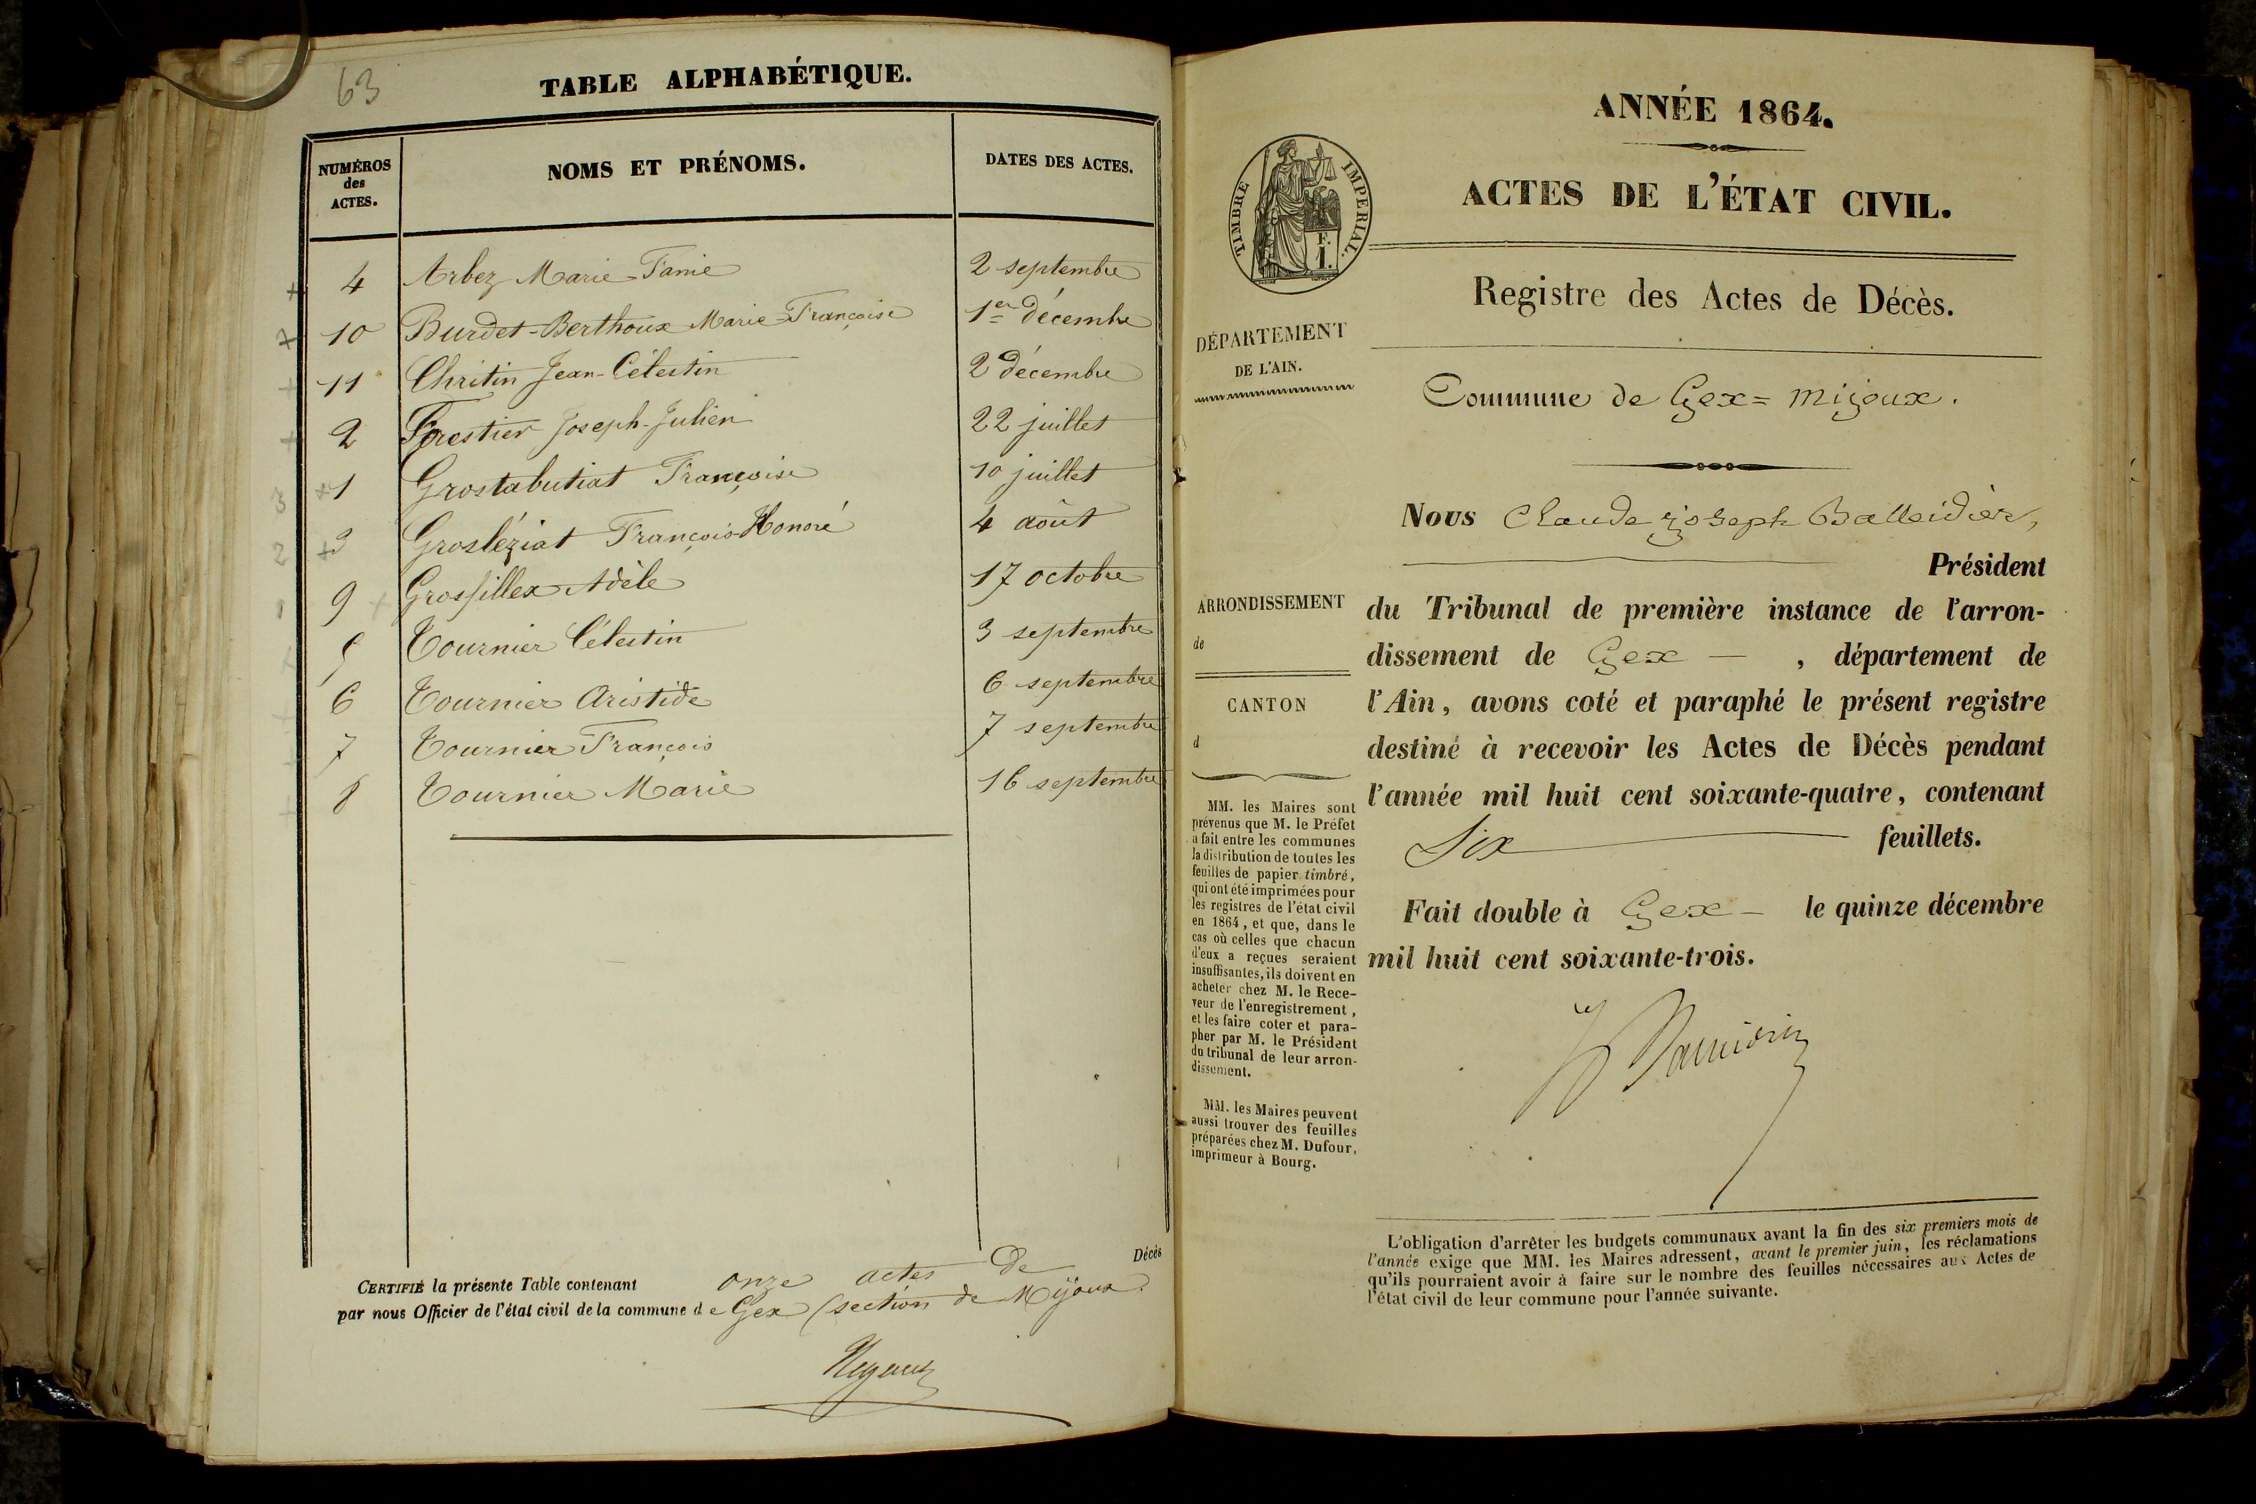 63
TABLE ALPHABÉTIQUE.
NUMÉROS
des
ACTES.
NOMS ET PRÉNOMS.
DATES DES ACTES.
4 Arbez Marie Fanie 2 septembre
10 Burdet-Berthoux Marie-Françoise 1er décembre
11 Chritin Jean-Célestin 2 décembre
2 Forestier Joseph-Julien 22 juillet
1 Grostabutiat Françoise 10 juillet
3 Grosléziat François-Honoré 4 août
9 Grosfillex Adèle 17 octobre
5 Tournier Célestin 3 septembre
6 Tournier Aristide 6 septembre
7 Tournier François 7 septembre
8 Tournier Marie 16 septembre
CERTIFIÉ la présente Table contenant onze actes de Décès
par nous Officier de l'état civil de la commune de Gex (section de Mijoux
ANNÉE 1864.
ACTES DE L'ÉTAT CIVIL.
TIMBRE IMPERIAL.
Registre des Actes de Décès.
DÉPARTEMENT
DE L'AIN.
Commune de Gex = Mijoux.
Nous Claude joseph Balleidier,
Président
ARRONDISSEMENT
de
CANTON
d
du Tribunal de première instance de l'arron-
dissement de Gex — , département de
l'Ain, avons coté et paraphé le présent registre
destiné à recevoir les Actes de Décès pendant
l'année mil huit cent soixante-quatre, contenant
Six feuillets.
Fait double à Gex - le quinze décembre
mil huit cent soixante-trois.
MM. les Maires sont
prévenus que M. le Préfet
a fait entre les communes
la distribution de toutes les
feuilles de papier timbré,
qui ont été imprimées pour
les registres de l'état civil
en 1864, et que, dans le
cas où celles que chacun
d'eux a reçues seraient
insuffisantes, ils doivent en
acheter chez M. le Rece-
veur de l'enregistrement,
et les faire coter et para-
pher par M. le Président
du tribunal de leur arron-
dissement.
MM. les Maires peuvent
aussi trouver des feuilles
préparées chez M. Dufour,
imprimeur à Bourg.
L'obligation d'arrêter les budgets communaux avant la fin des six premiers mois de
l'année exige que MM. les Maires adressent, avant le premier juin, les réclamations
qu'ils pourraient avoir à faire sur le nombre des feuilles nécessaires aux Actes de
l'état civil de leur commune pour l'année suivante.